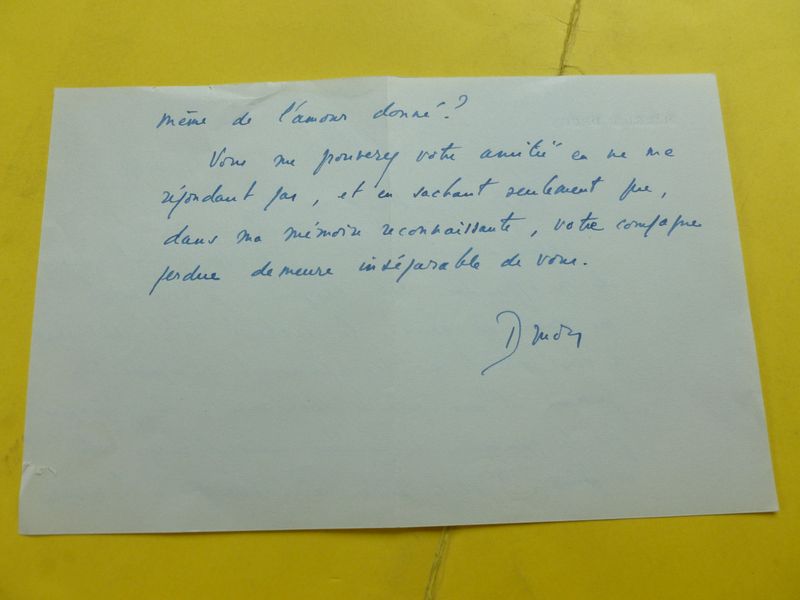 même de l'amour donné ?
Vous me prouverez votre amitié en ne me
répondant pas, et en sachant seulement que,
dans ma mémoire reconnaissante, votre compagne
perdue demeure inséparable de vous.